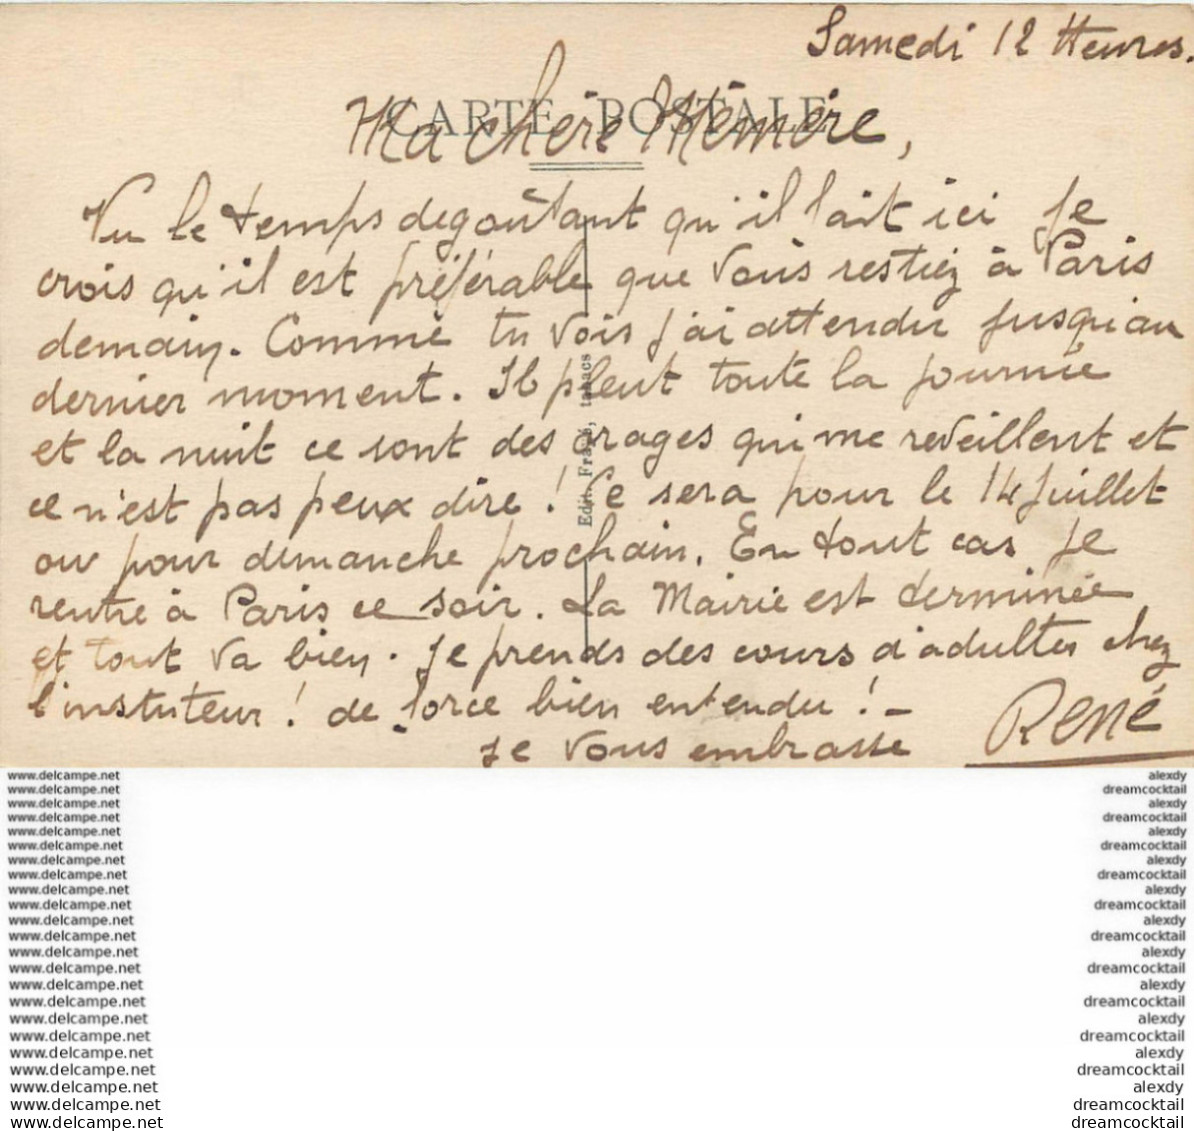 Samedi 12 Heures.
CARTE POSTALE
Ma chère Mémère,
Vu le temps degoûtant qu'il fait ici je
crois qu'il est préférable que vous restiez à Paris
demain. Comme tu vois j'ai attendu jusqu'au
dernier moment. Il pleut toute la journée
et la nuit ce sont des orages qui me reveillent et
ce n'est pas peux dire ! Ce sera pour le 14 Juillet
ou pour dimanche prochain. En tout cas je
rentre à Paris ce soir. La Mairie est terminée
et tout va bien. Je prends des cours d'adultes chez
l'instuteur ! de force bien entendu ! -
Je vous embrasse
René
Edit. Frague, tabacs
www.delcampe.net
www.delcampe.net
www.delcampe.net
www.delcampe.net
www.delcampe.net
www.delcampe.net
www.delcampe.net
www.delcampe.net
www.delcampe.net
www.delcampe.net
www.delcampe.net
www.delcampe.net
www.delcampe.net
www.delcampe.net
www.delcampe.net
www.delcampe.net
www.delcampe.net
www.delcampe.net
www.delcampe.net
www.delcampe.net
www.delcampe.net
www.delcampe.net
www.delcampe.net
alexdy
dreamcocktail
alexdy
dreamcocktail
alexdy
dreamcocktail
alexdy
dreamcocktail
alexdy
dreamcocktail
alexdy
dreamcocktail
alexdy
dreamcocktail
alexdy
dreamcocktail
alexdy
dreamcocktail
alexdy
dreamcocktail
alexdy
dreamcocktail
dreamcocktail